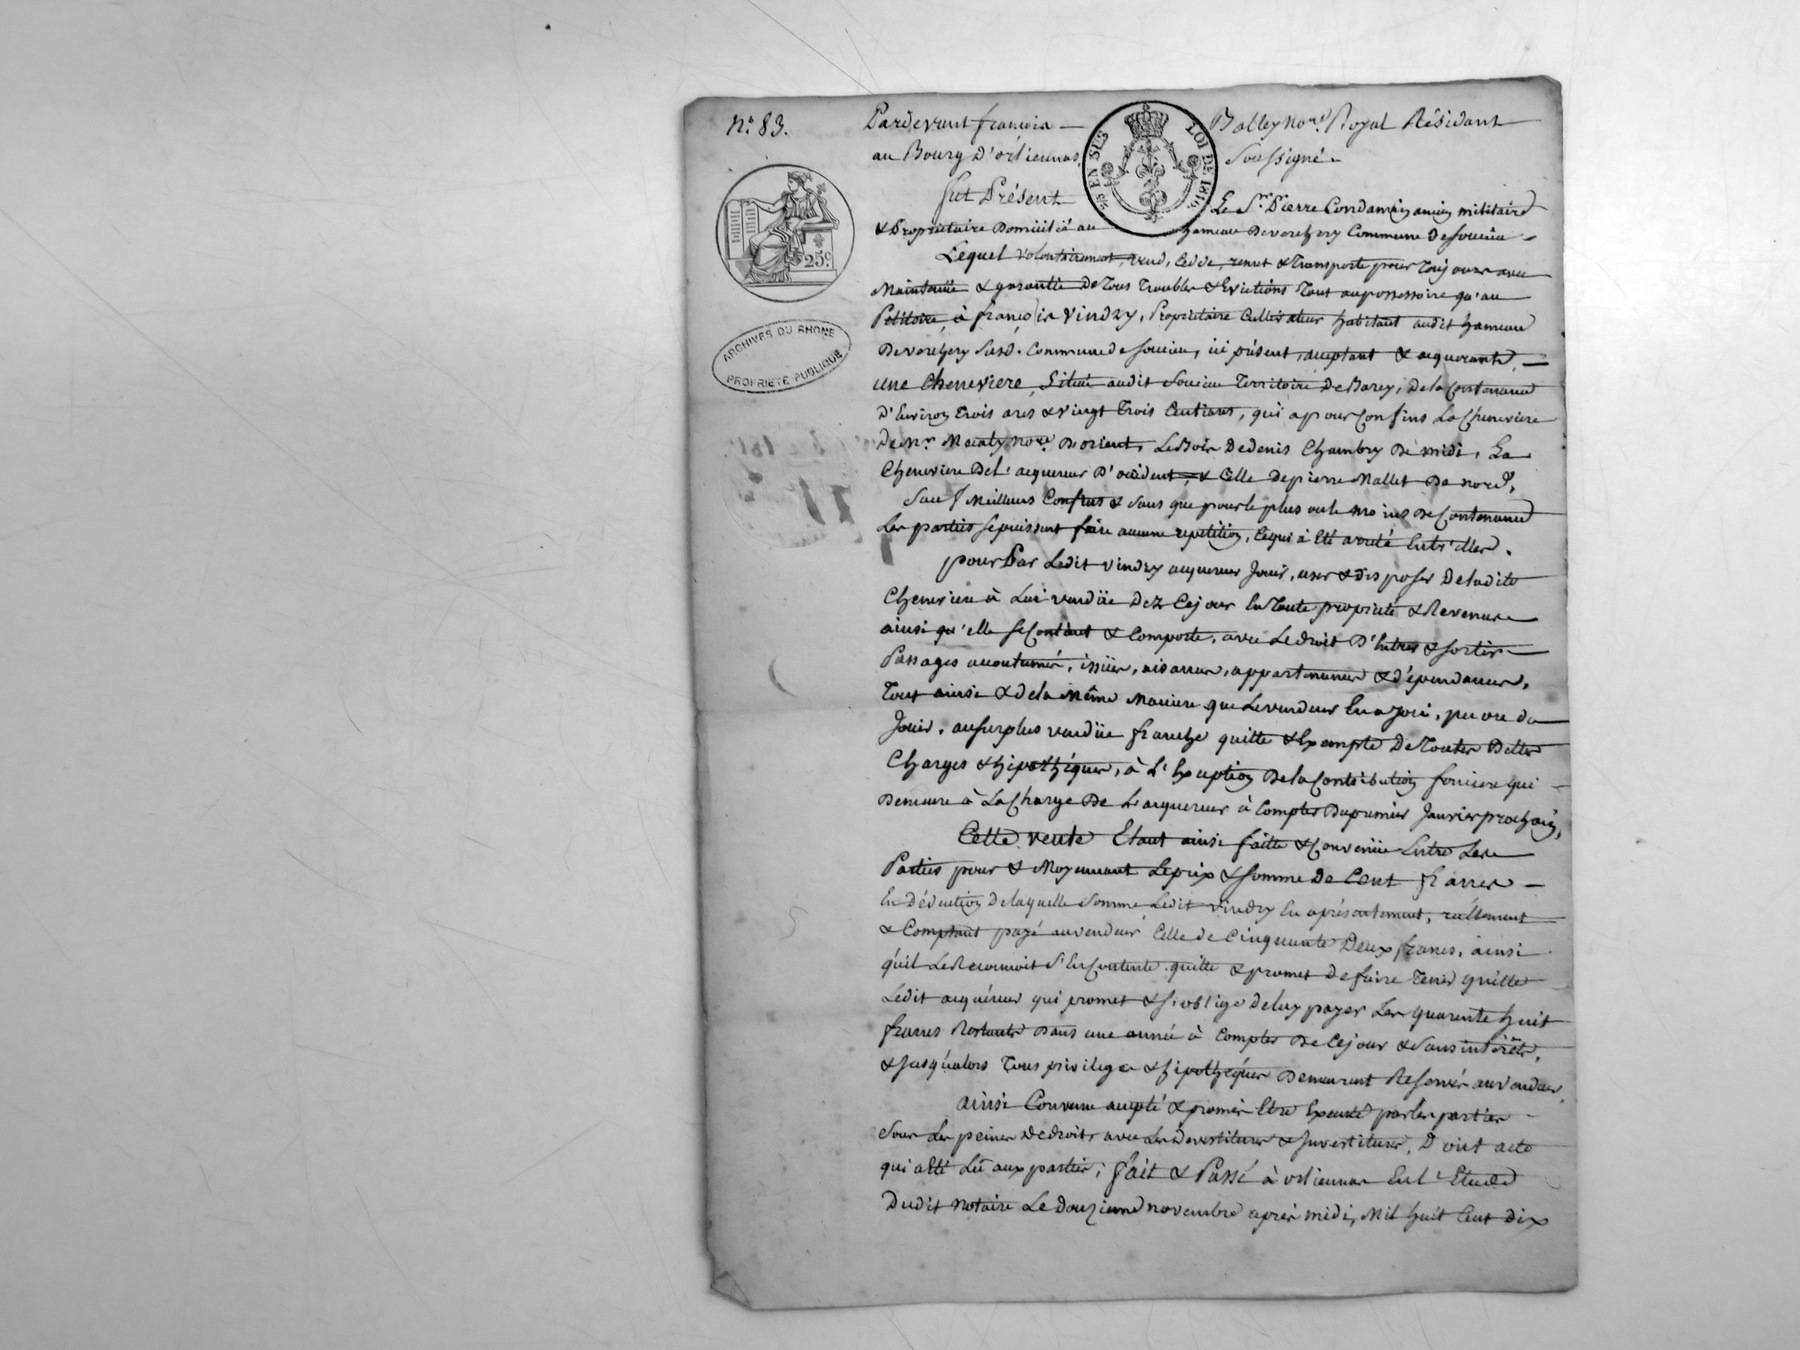 N.° 83.
Pardevant françois — Balley no.re Royal Résidant
au Bourg d'orliennas, soussigné.
25 EN SUS
LOI DE 1816.
25.c
ARCHIVES DU RHONE
PROPRIÉTÉ PUBLIQUE
fut Présent Le S.r Pierre Condamin ancien militaire
& Propriétaire Domicilié au hameau de verchery Commune de soucieu —
Lequel volontairement, vend, cedde, remet & transporte pour toujours avec
Maintenüe & garantie de tous troubles & Evictions tant au possessoire qu'au
Petitoire, à françois Vindry, Propriétaire Cultivateur habitant audit hameau
de verchery susd. Commune de soucieu, ici présent, acceptant & acquerant, —
une Cheneviere, Située audit soucieu Territoire de Barey, de la Contenance
d'Environ trois ares & vingt trois Centiares, qui a pour Confins La Cheneviere
de M.r no.re d'orient, Le Bois de denis Chambry de midi, La
Cheneviere de l'acquereur d'occident, & Celle de pierre Mallet de nord,
Sauf Meilleurs Confins & sans que pour le plus ou le moins de Contenance
Les parties se puissent faire aucune repetition, Ce qui a Eté arreté Entr'elles.
pour Par Ledit vindry acquereur Jouir, user & disposer de ladite
Cheneviere à Lui vendüe dez Cejour En toute propriété & Revenus
ainsi qu'elle se Contient & Comporte, avec Le droit d'Entrer & sortir —
Passages accoutumés, issües, aisances, appartenances & dépendances,
Tout ainsi & de la Même Maniere que Le vendeur En a Joui, pu ou du
Jouir, au surplus vendüe franche quitte & Exempte de toutes Dettes
Charges & hipothéques, à L'Exception de la Contribution fonciere qui —
Demeure à La Charge de L'acquereur à Compter du premier Janvier prochain,
Cette vente Etant ainsi faitte & Convenüe Entre Les
Parties pour & Moyennant Le prix & somme de Cent francs —
En déduction de laquelle somme Ledit vindry En a présentement, réellement
& Comptant payé au vendeur Celle de Cinquante Deux francs, ainsi
qu'il Le Reconnoit S'En Contente quitte & promet de faire tenir quitte
Ledit acquéreur qui promet & s'oblige de luy payer Les quarente huit
francs Restants dans une année à Compter de Cejour & sans intérêts,
& jusqu'alors tous privileges & hipothéques Demeurent Reservés au vendeur,
ainsi Convenu accepté & promis Etre Executé par les parties
Sous Les peines de droit, avec Les Devestitures & Investitures, D'ont acte
qui a Eté Lû aux parties; fait & Passé à orliennas En L'Etude
Dudit notaire Le Douzieme novembre après midi, Mil huit Cent Dix